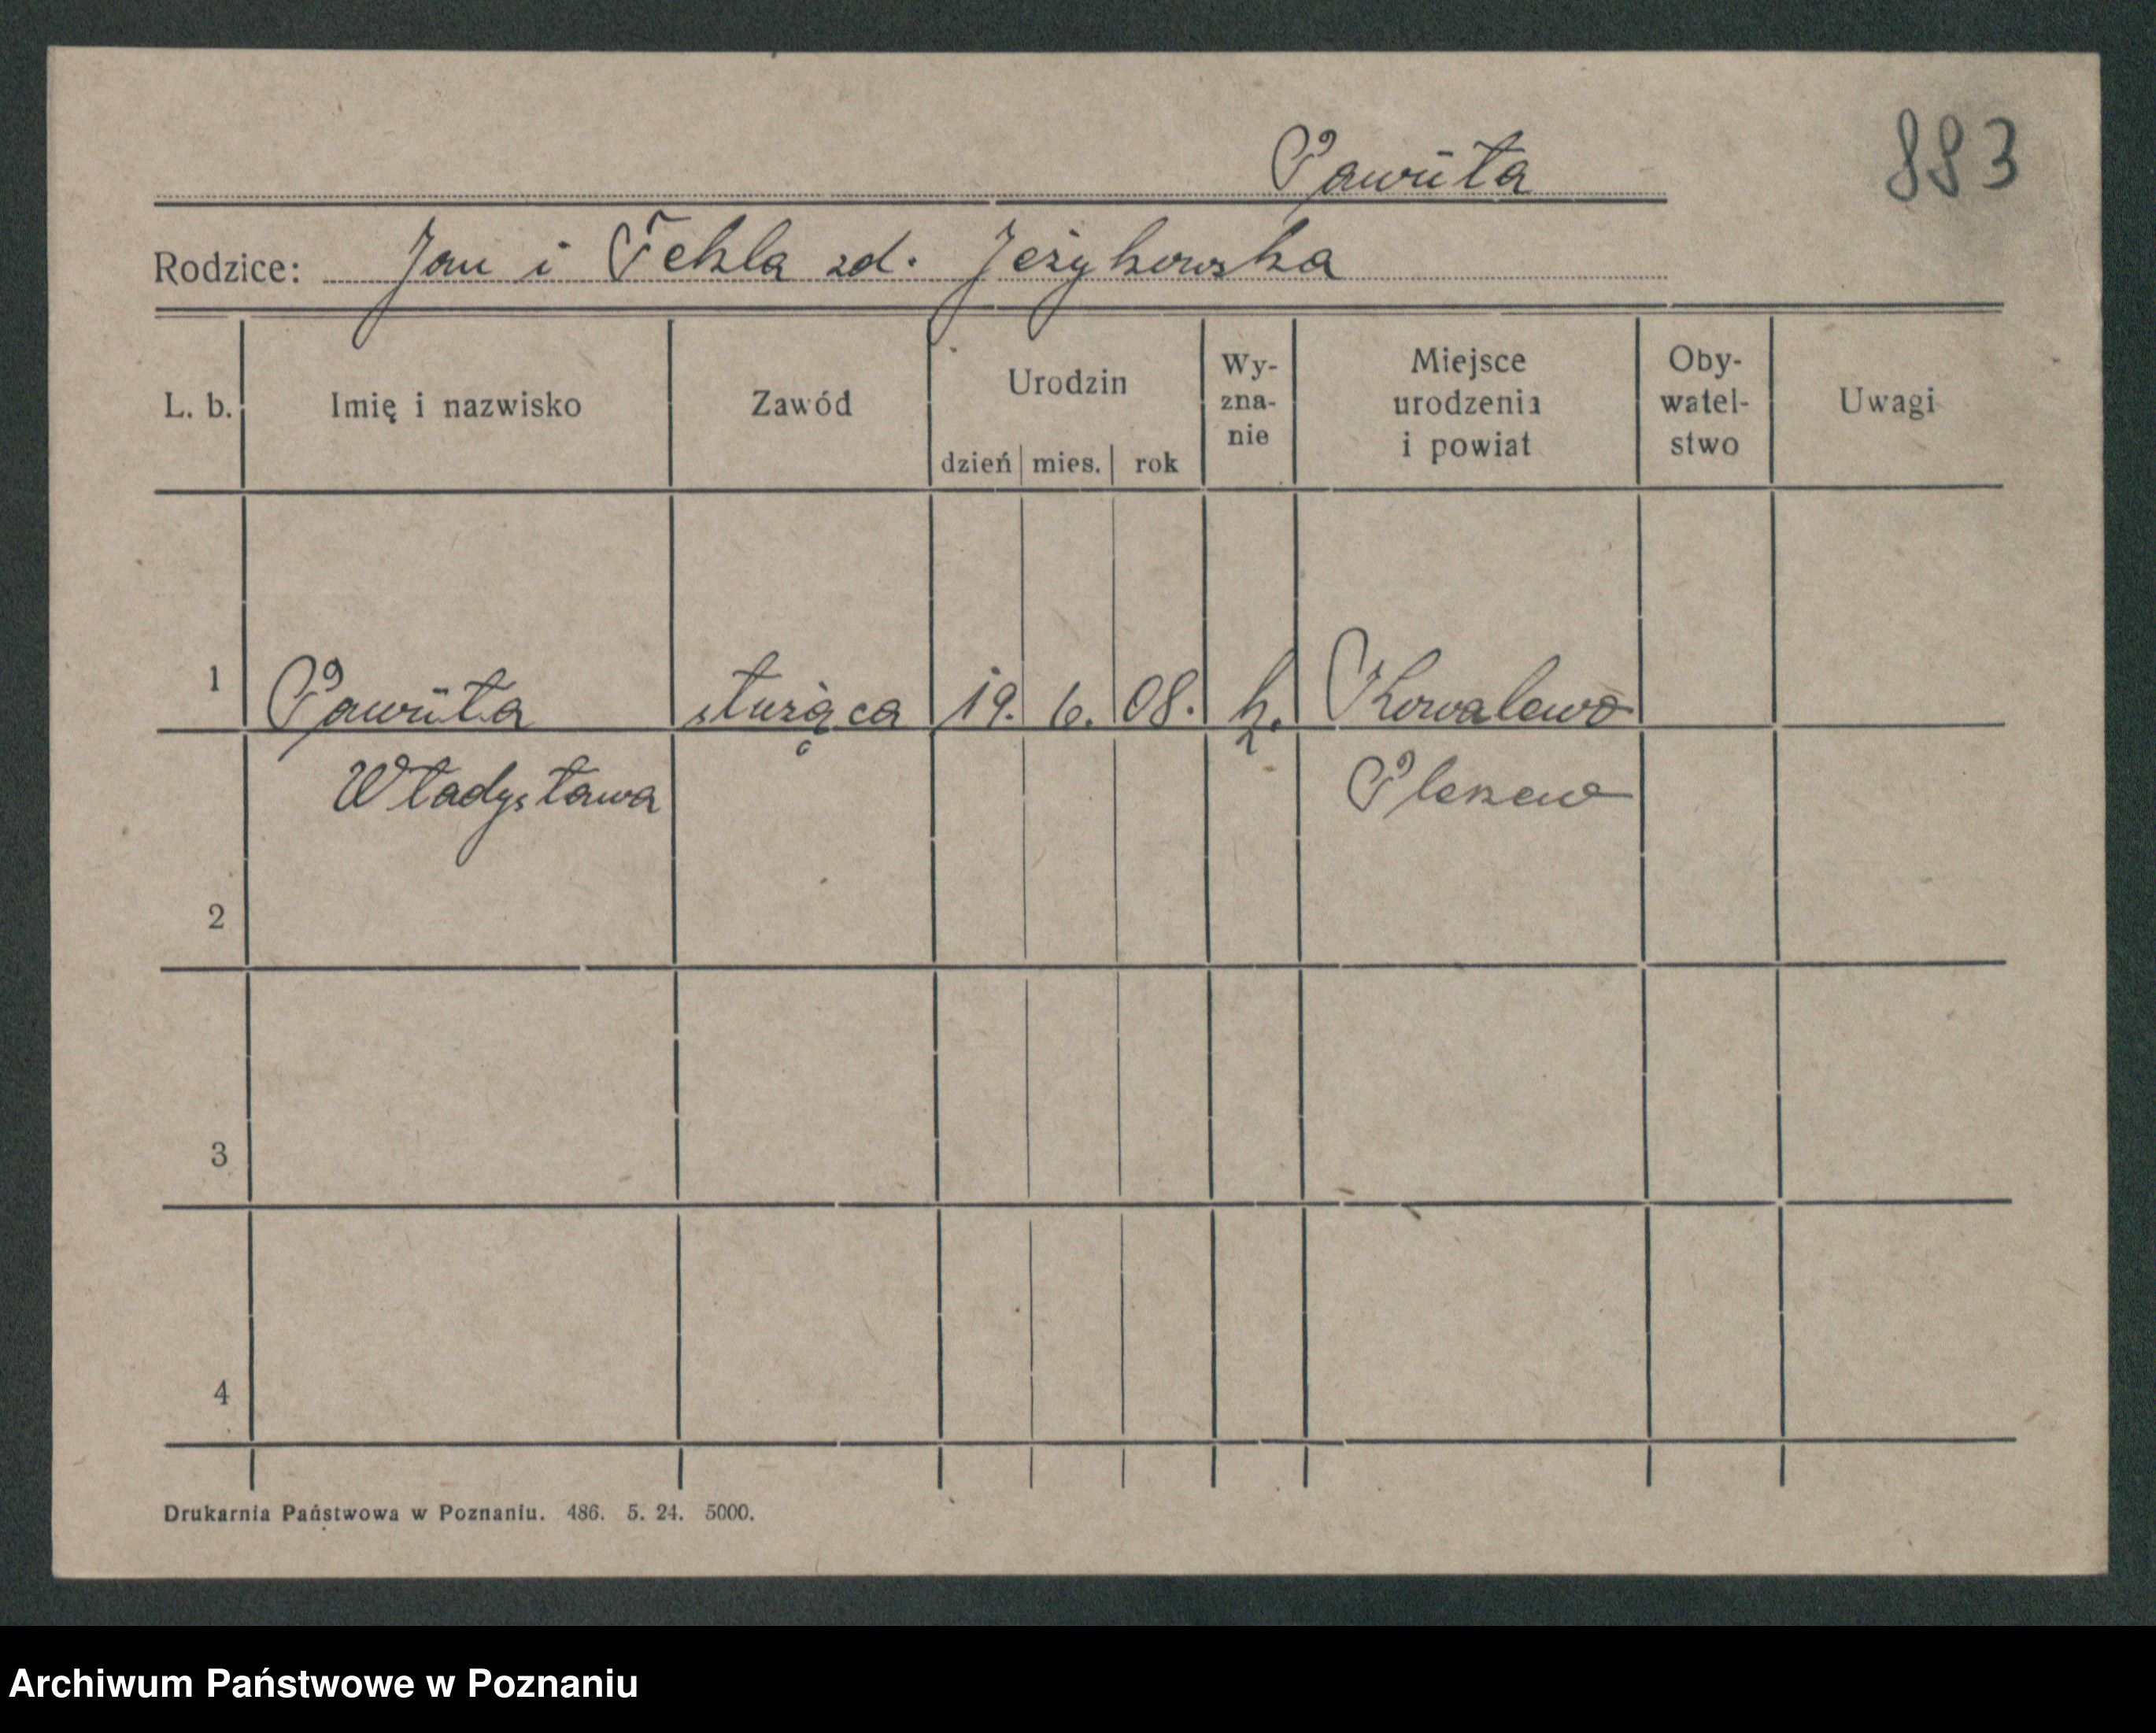 883
Pawuła
Rodzice: Jan i Tekla zd. Jeżykowska
L. b. Imię i nazwisko Zawód Urodzin dzień mies. rok Wy-zna-nie Miejsce urodzenia i powiat Oby-watel-stwo Uwagi
1 Pawuła służąca 19. 6. 08. k. Kowalewo
Władysława Pleszew
2
3
4
Drukarnia Państwowa w Poznaniu. 486. 5. 24. 5000.
Archiwum Państwowe w Poznaniu